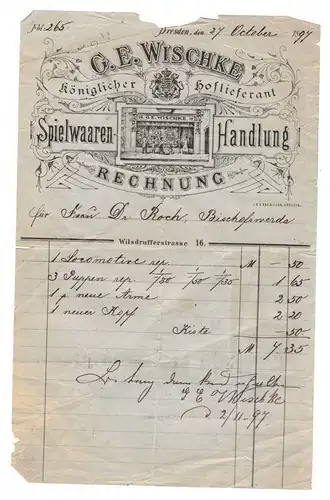 265
Dresden, den 27 October 1897
G. E. WISCHKE
Königlicher Hoflieferant
G. E. WISCHKE
Spielwaaren-Handlung
RECHNUNG
für Frau Dr Koch, Bischofswerda
Wilsdrufferstrasse 16.
1 Locomotive rep. M – 50
3 Puppen rep. 1/50 1/50 1/30 1 65
1 neue Arme 2 50
1 neuer Kopf 2 20
Kiste – 50
M 7 35
G E Wischke
2/11-97.